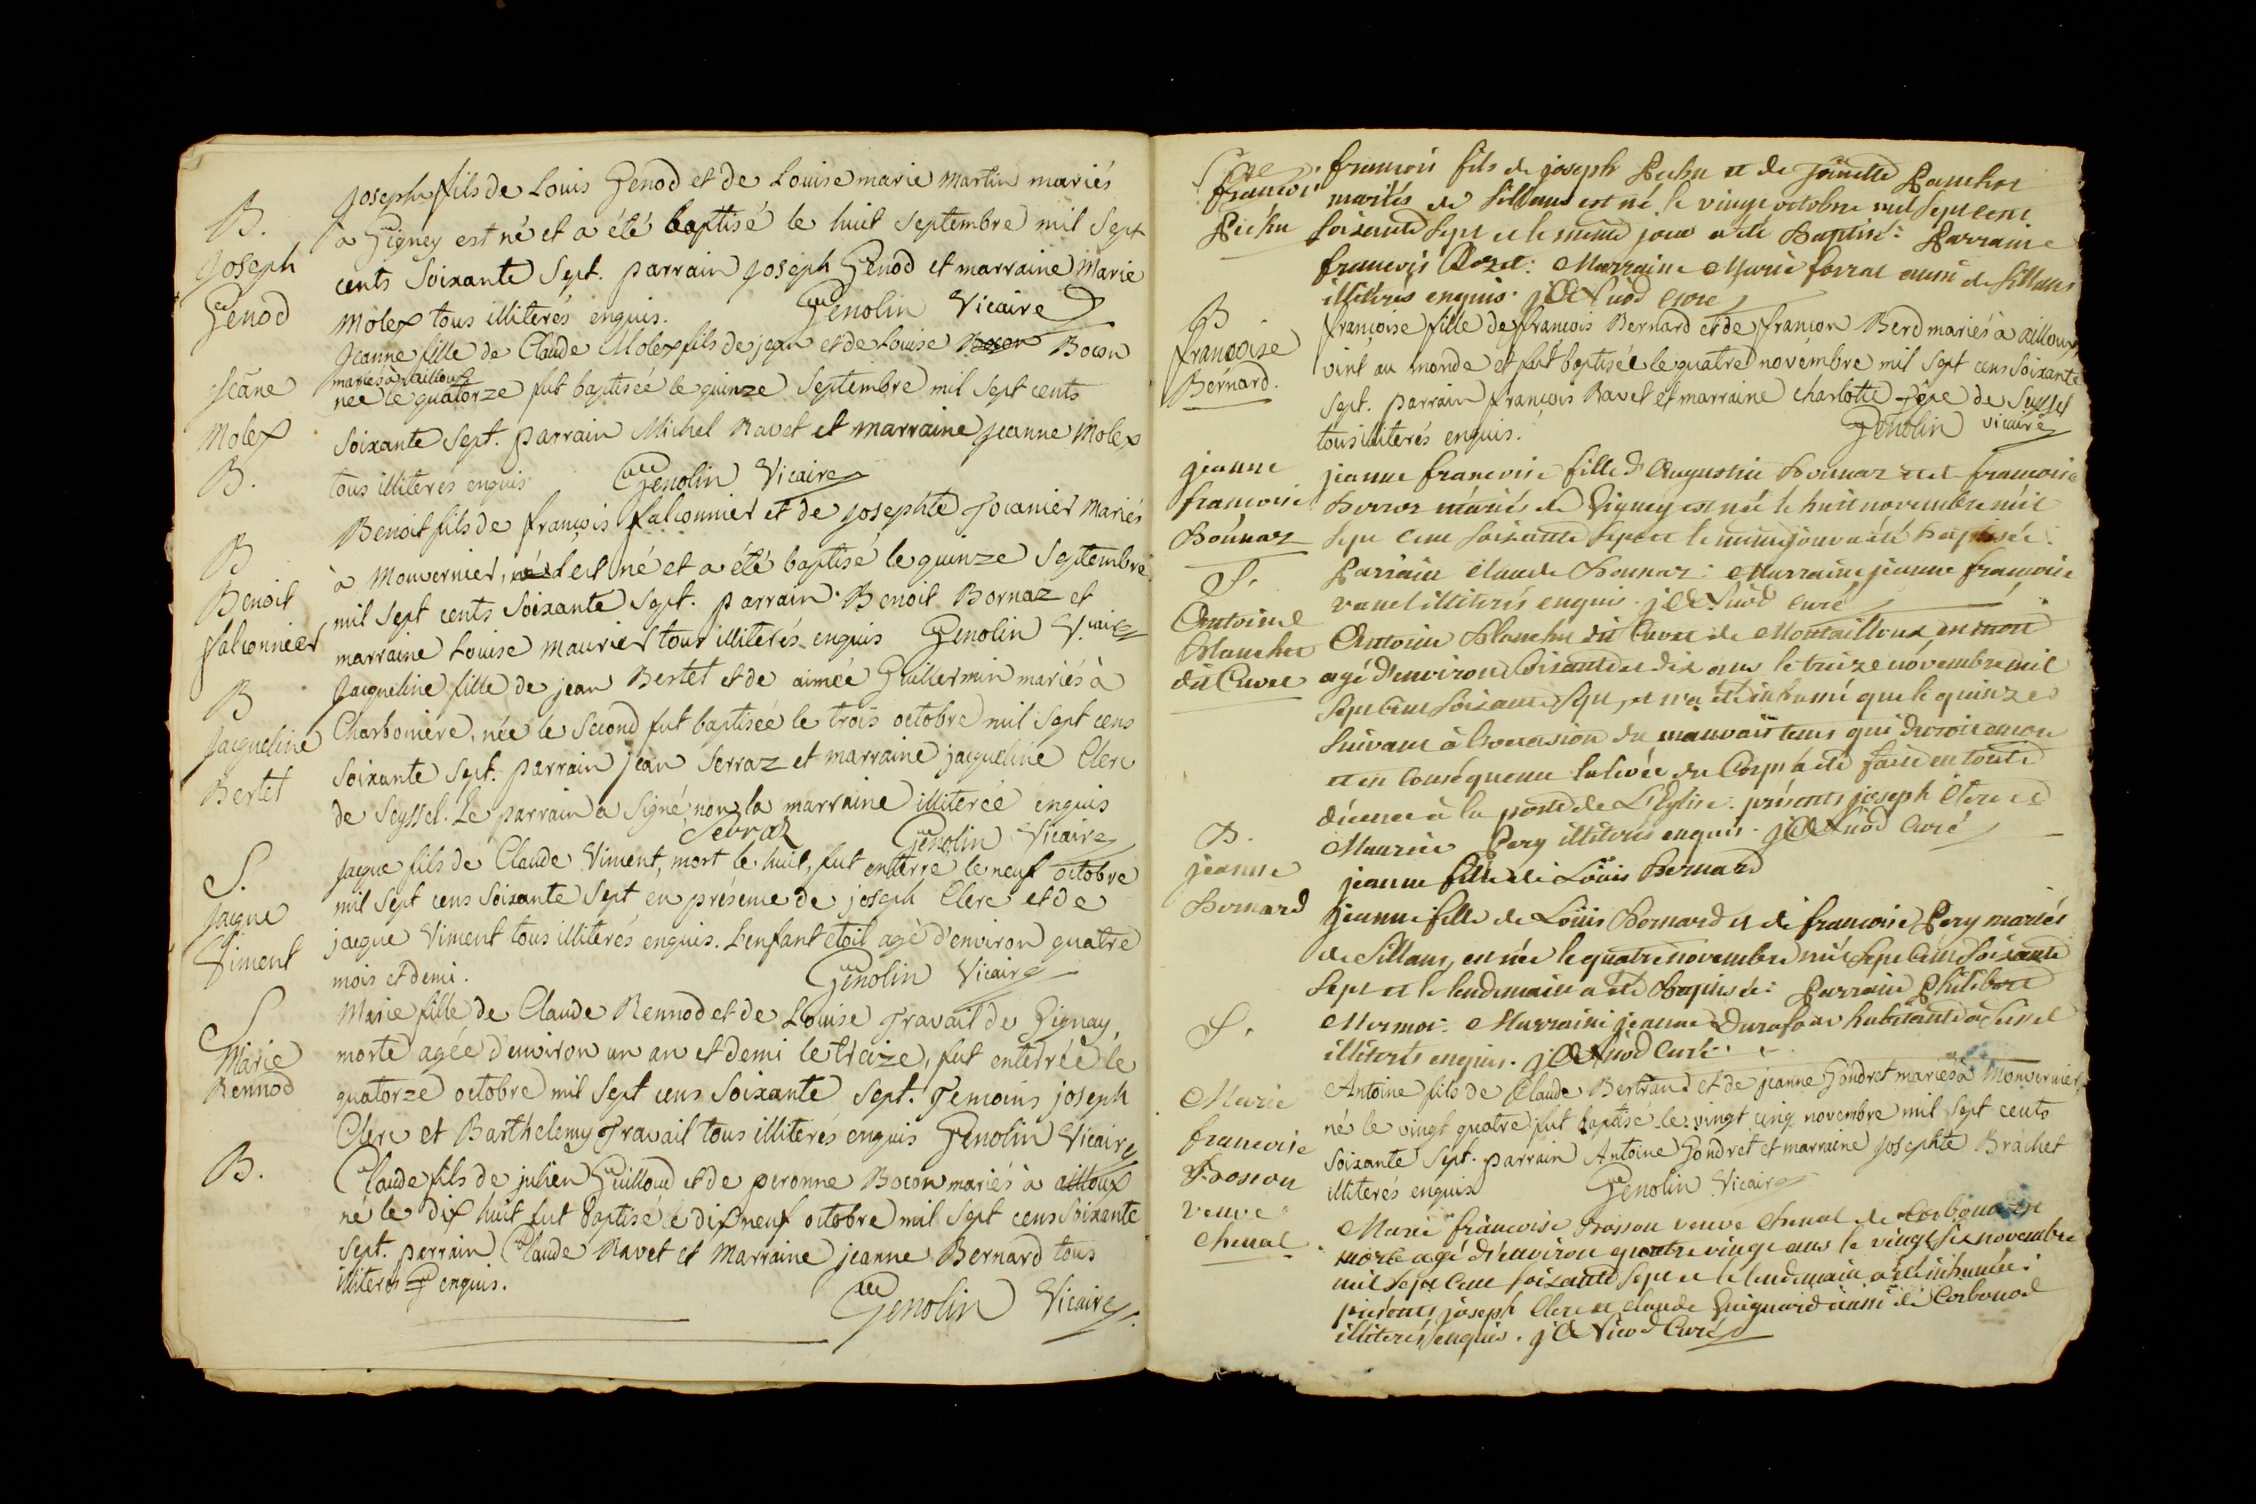 B.
Joseph
Genod
Joseph fils de Louis Genod et de Louise marie Martin mariés
à Gigney est né et a été baptisé le huit Septembre mil Sept
cents Soixante Sept. parrain Joseph Genod et marraine Marie
Molex tous illiterés enquis. Genolin Vicaire
Jeãne
Molex
B.
Jeanne fille de Claude Molex fils de jean et de Louise Bocon Bocon
mariés à ailloux
née le quatorze fut baptisée le quinze Septembre mil Sept cents
Soixante Sept. parrain Michel Ravet et marraine jeanne Molex
tous illiteres enquis Genolin Vicaire
B
Benoit
falconnier
Benoit fils de françois falconnier et de Josephte Jocanier Mariés
à Mouvernier, est né et a été baptisé le quinze Septembre
mil Sept cents Soixante Sept. parrain Benoit Bornaz et
marraine Louise maurier tous illiterés enquis Genolin V.icaire
B
Jacqueline
Bertet
Jacqueline fille de jean Bertet et de aimée Guillermin mariés à
Charboniere, née le Second fut baptisée le trois octobre mil Sept cens
Soixante Sept. parrain jean Serraz et marraine jacqueline Clerc
de Seyssel. Le parrain a Signé non la marraine illiterée enquis
Serraz Genolin Vicaire
S.
Jacque
Viment
Jacque fils de Claude Viment, mort le huit, fut enterré le neuf octobre
mil Sept cens Soixante Sept en présence de joseph Clerc et de
jacque Viment tous illiterés enquis. L'enfant étoit agé d'environ quatre
mois et demi. Genolin Vicaire
S
Marie
Rennod
Marie fille de Claude Rennod et de Louise Travail de Gignay,
morte agée d'environ un an et demi le treize, fut enterrée le
quatorze octobre mil Sept cens Soixante Sept. Temoins joseph
Clerc et Barthelemy Travail tous illiterés enquis Genolin Vicaire
B.
Claude fils de julien Guilloud et de peronne Bocon mariés à ailloux
né le dix huit fut baptisé le dix neuf octobre mil Sept cens Soixante
Sept. parrain Claude Ravet et Marraine jeanne Bernard tous
illiteres enquis.
Genolin Vicaire
françois
françois fils de joseph et de
mariés de Sillans est né le vingt octobre mil Sept cent
Soixante Sept et le même jour a été Baptisé: Parraine
francois Marraine Marie ferrat aussi de Sillans
illiterés enquis. Curé
B
françoise
Bernard.
françoise fille de francois Bernard et de françon Berd mariés à ailloux,
vint au monde et fut baptisée le quatre novembre mil Sept cens Soixante
Sept. parrain françois Ravet et marraine charlotte de Seyssel
tous illiterés enquis. Genolin vicaire
jeanne
francoise
Bonnaz
jeanne francoise fille d'Augustin Bonnaz et francoise
mariés de Gigney est née le huit novembre mil
Sept cent Soixante Sept et le même jour a été baptisée:
Parrain Claude Bonnaz: Marraine jeanne francoise
vanel illiterés enquis. Curé
S.
Antoine
Blanchet
dit Cuvet
Antoine Blanchet dit Cuvet de Montailloux, est mort
agé d'environ Soixante et dix ans le treize novembre mil
Sept Cent Soixante Sept, et n'a été inhumé que le quinze
Suivant à l'occasion du mauvais tems qui
et en Conséquence la levée du Corps a été faite en toute
décence à la porte de L'Eglise: présents joseph Clerc et
Maurice Pery illiterés enquis. Curé
B.
jeanne
Bernard
jeanne fille de Louis Bernard
jeanne fille de Louis Bernard et de francoise Pery mariés
de Sillans, est née le quatre novembre mil Sept Cent Soixante
Sept et le lendemain a été baptisée: Parrain Philibert
Mermoz: Marraine jeanne Durafour habitante à Seissel
illiterés enquis. Curé.
Antoine fils de Claude Bertrand et de jeanne Gondret mariés à Mouvernier,
né le vingt quatre fut baptisé le vingt cinq novembre mil Sept cents
Soixante Sept. parrain Antoine Gondret et marraine Josephte Brachet
illiterés enquis Genolin Vicaire
S.
Marie
francoise
Bosson
veuve
Chenal
Marie francoise Bosson veuve Chenal de Corbonod est
morte agé d'environ quatre vingt ans le vingt Six novembre
mil Sept Cent Soixante Sept et le lendemain a été inhumée:
présents joseph Clerc et Claude Guignard aussi de Corbonod
illiterés enquis. Curé